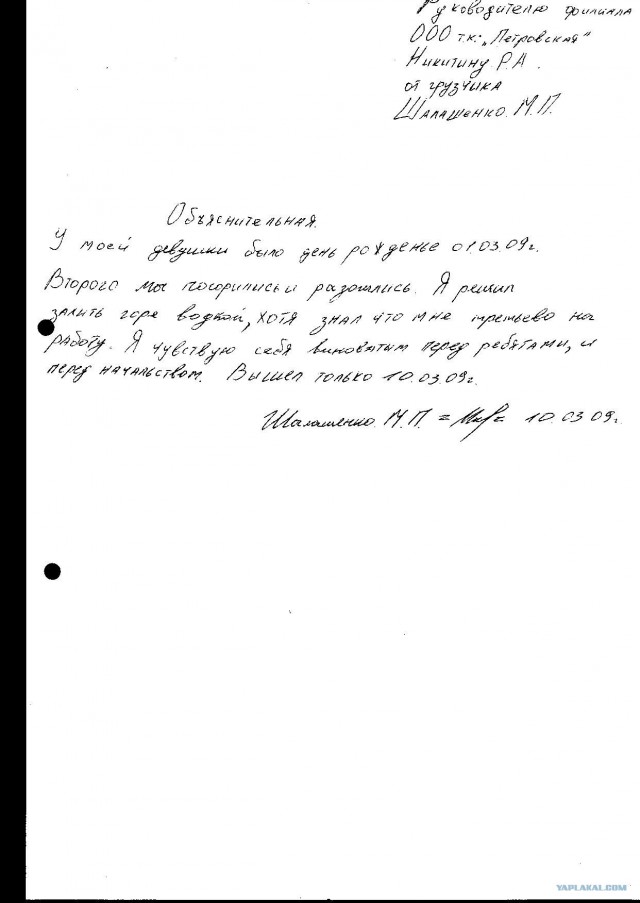 Руководителю филиала
ООО т.к. „Петровская"
Никитину Р.А.
от грузчика
Шалашенко. М.П.
Объяснительная.
У моей девушки было день рожденье 01.03.09г.
Второго мы посорились и разошлись. Я решил
залить горе водкой, хотя знал что мне третьево на
работу. Я чувствую себя виноватым перед ребятами, и
перед начальством. Вышел только 10.03.09г.
Шалашенко. М.П. = 10.03.09г.
YAPLAKAL.COM